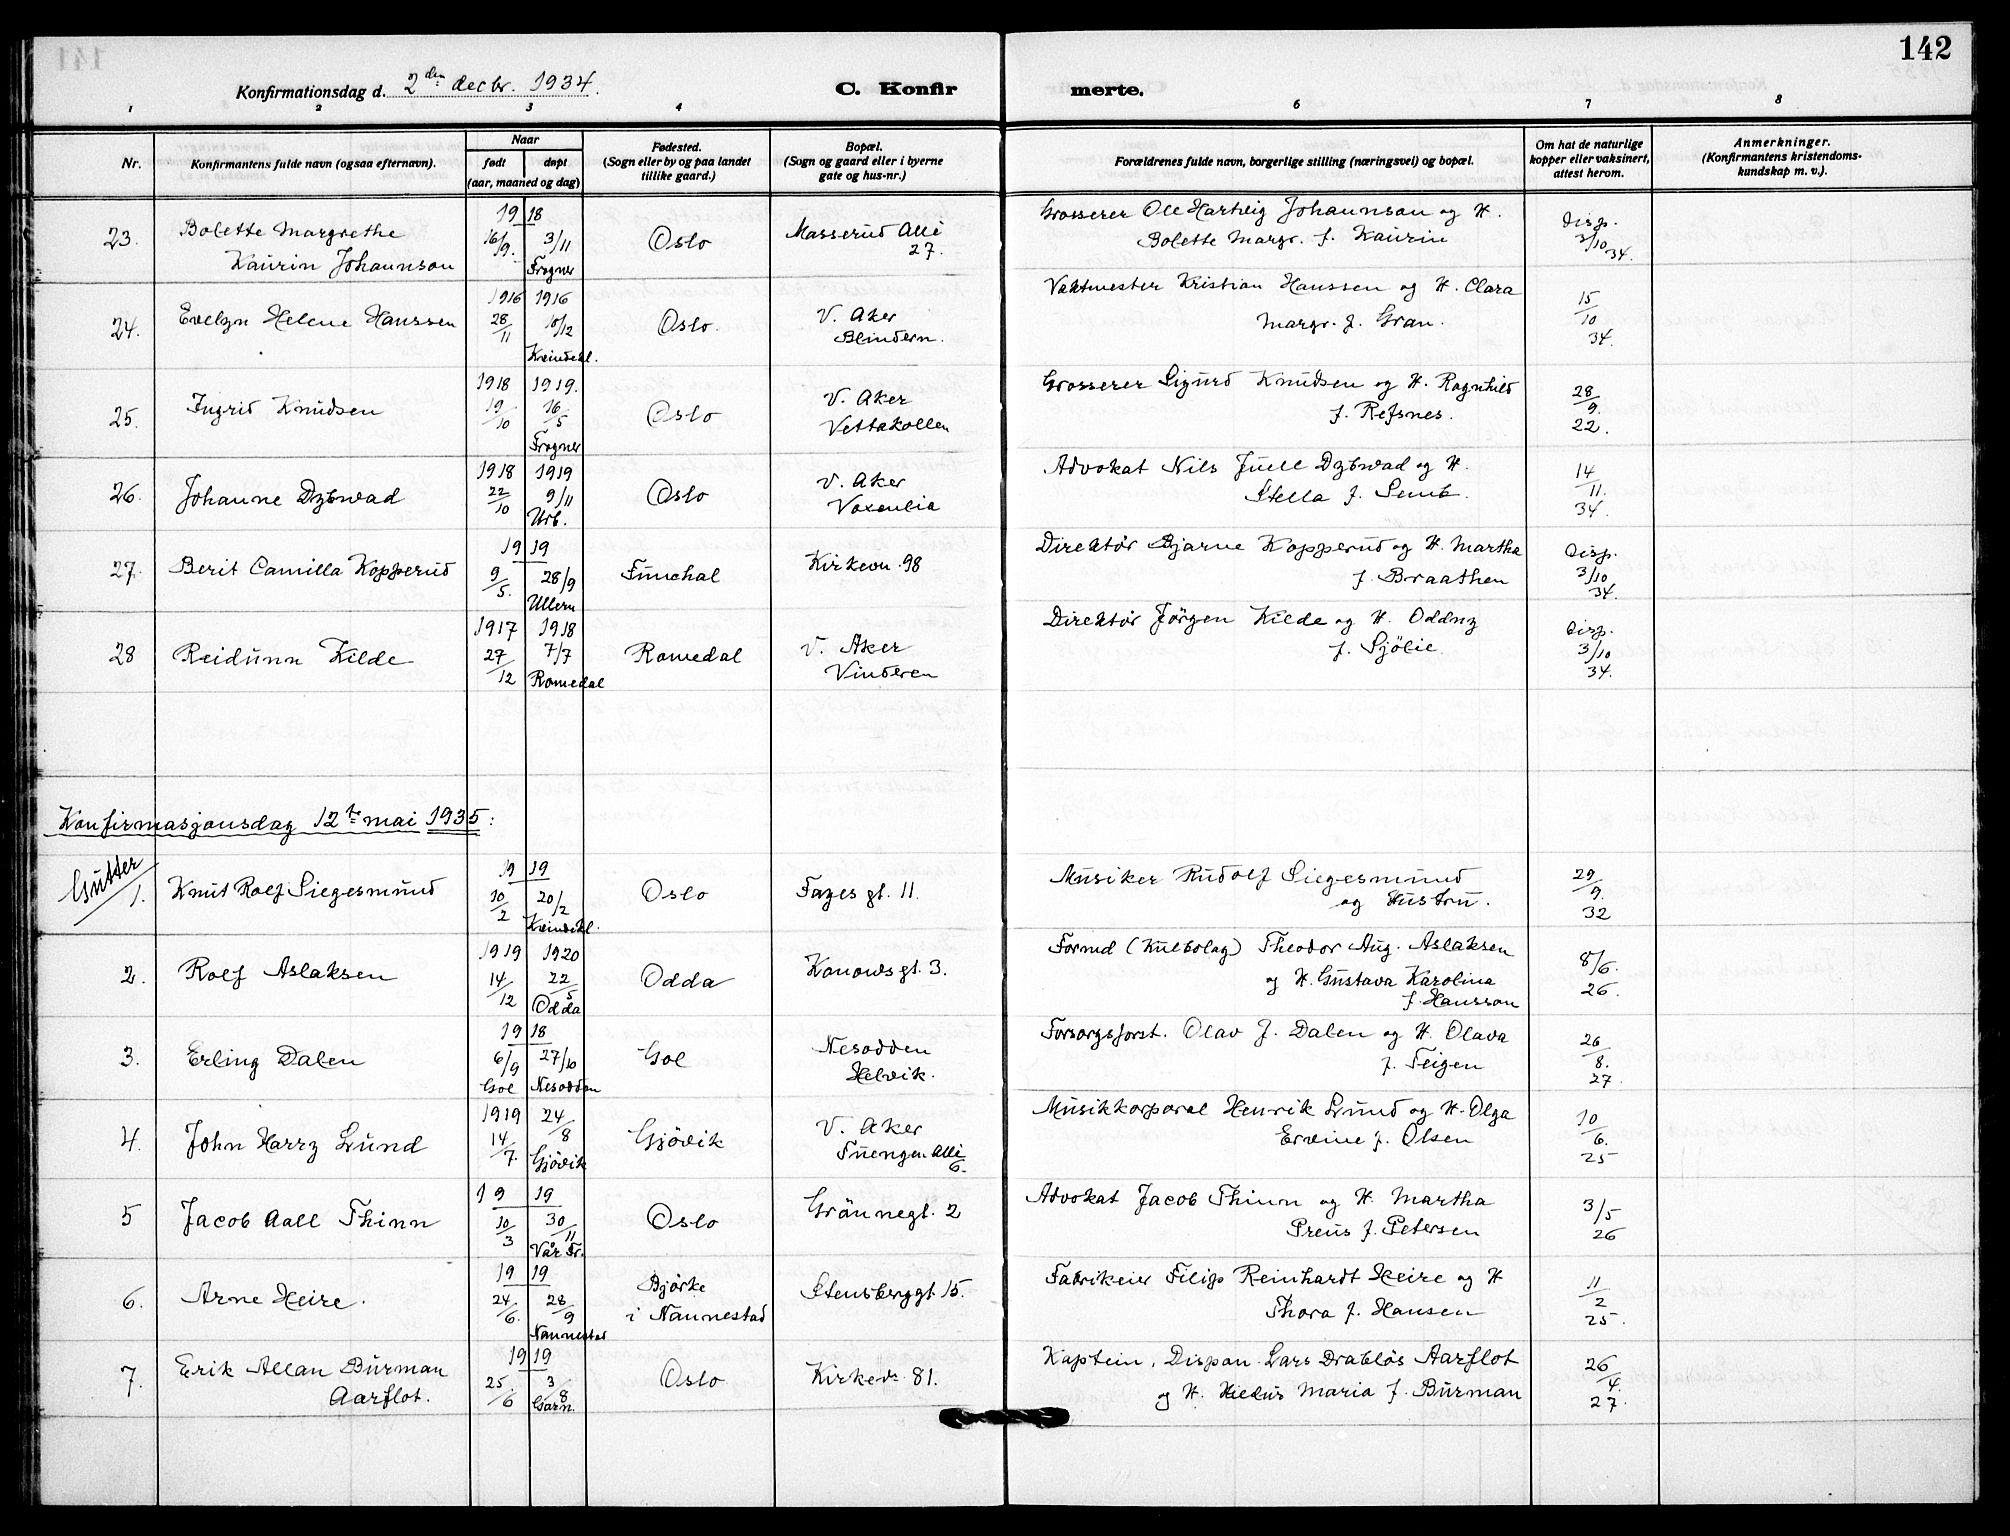 142
Konfirmationsdag d. 2den decbr. 1934.
C. Konfirmerte.
1 2 3 4 6 7 8
Nr.
Konfirmantens fulde navn (ogsaa efternavn).
Naar
født døpt
(aar, maaned og dag)
Fødested.
(Sogn eller by og paa landet
tillike gaard.)
Bopæl.
(Sogn og gaard eller i byerne
gate og hus-nr.)
Forældrenes fulde navn, borgerlige stilling (næringsvei) og bopæl.
Om hat de naturlige
kopper eller vaksinert,
attest herom.
Anmerkninger.
(Konfirmantens kristendoms-
kundskap m. v.).
23. Bolette Margrethe
Kaurin Johannson
19 18
16/9. 3/11
Frogner
Oslo
Masserud Allé
27.
Grosserer Ole Hartvig Johannson og H.
Bolette Margr. f. Kaurin
Disp.
3/10 34.
24. Evelyn Helene Hanssen
1916 1916
28/11 10/12
Kvindekl.
Oslo.
V. Aker
Blindern.
Vaktmester Kristian Hanssen og H. Clara
Margr. f. Gran.
15/10
34.
25. Ingrid Knudsen
1918 1919.
19/10 16/5
Frogner
Oslo
V. Aker
Vettakollen
Grosserer Sigurd Knudsen og H. Ragnhild
f. Refsnes.
28/9.
22.
26. Johanne Dybwad
1918 1919
22/10 9/11
Urb.
Oslo
V. Aker
Voxenlia
Advokat Nils Juell Dybwad og H.
Stella f. Semb.
14/11.
34.
27. Berit Camilla Kopperud
19 19
9/5. 28/9
Ullern
Funchal
Kirkevn. 98
Direktør Bjarne Kopperud og H. Martha
f. Braathen
Disp.
3/10
34.
28 Reidunn Kilde
1917 1918
27/12 7/7
Romedal
Romedal
V. Aker
Vinderen
Direktør Jörgen Kilde og H. Oddny
f. Sjölie
Disp.
3/10
34.
Konfirmasjonsdag 12te mai 1935:
Gutter
1. Knut Rolf Siegesmund
19 19
10/2 20/2
Kvindekl.
Oslo
Fayes gt. 11.
Musiker Rudolf Siegesmund
og Hustru.
29/9.
32
2. Rolf Aslaksen
1919 1920
14/12 22/5
Odda
Odda
Konowsgt. 3.
Formd (Kulbolag) Theodor Aug. Aslaksen
og H. Gustava Karolina
f. Hansson
8/6.
26.
3. Erling Dalen
19 18
6/9 27/10
Gol Nesodden
Gol
Nesodden
Helvik.
Forsorgsforst. Olav J. Dalen og H. Olava
f. Teigen
26/8.
27.
4. John Harry Lund
1919 24/8
14/7. Gjövik
Gjövik
V. Aker
Tuengen Allé
6.
Musikkorporal Henrik Lund og H. Olga
Ervine f. Olsen
10/6.
25
5 Jacob Aall Thinn
19 19
10/3 30/11
Vår Fr.
Oslo
Grönnegt. 2
Advokat Jacob Thinn og H. Martha
Preus f. Petersen
3/5
26
6. Arne Heire.
19 19
24/6. 28/9
Nannestad
Bjørke
i Nannestad
Stensberggt. 15.
Fabrikeier Filip Reinhardt Heire og H
Thora f. Hansen
11/2
25.
7. Erik Allan Burman
Aarflot.
19 19
25/6 3/8
Garn.
Oslo
Kirkev. 81.
Kaptein, Dispon. Lars Drabløs Aarflot
og H. Maria f. Burman
26/4.
27.